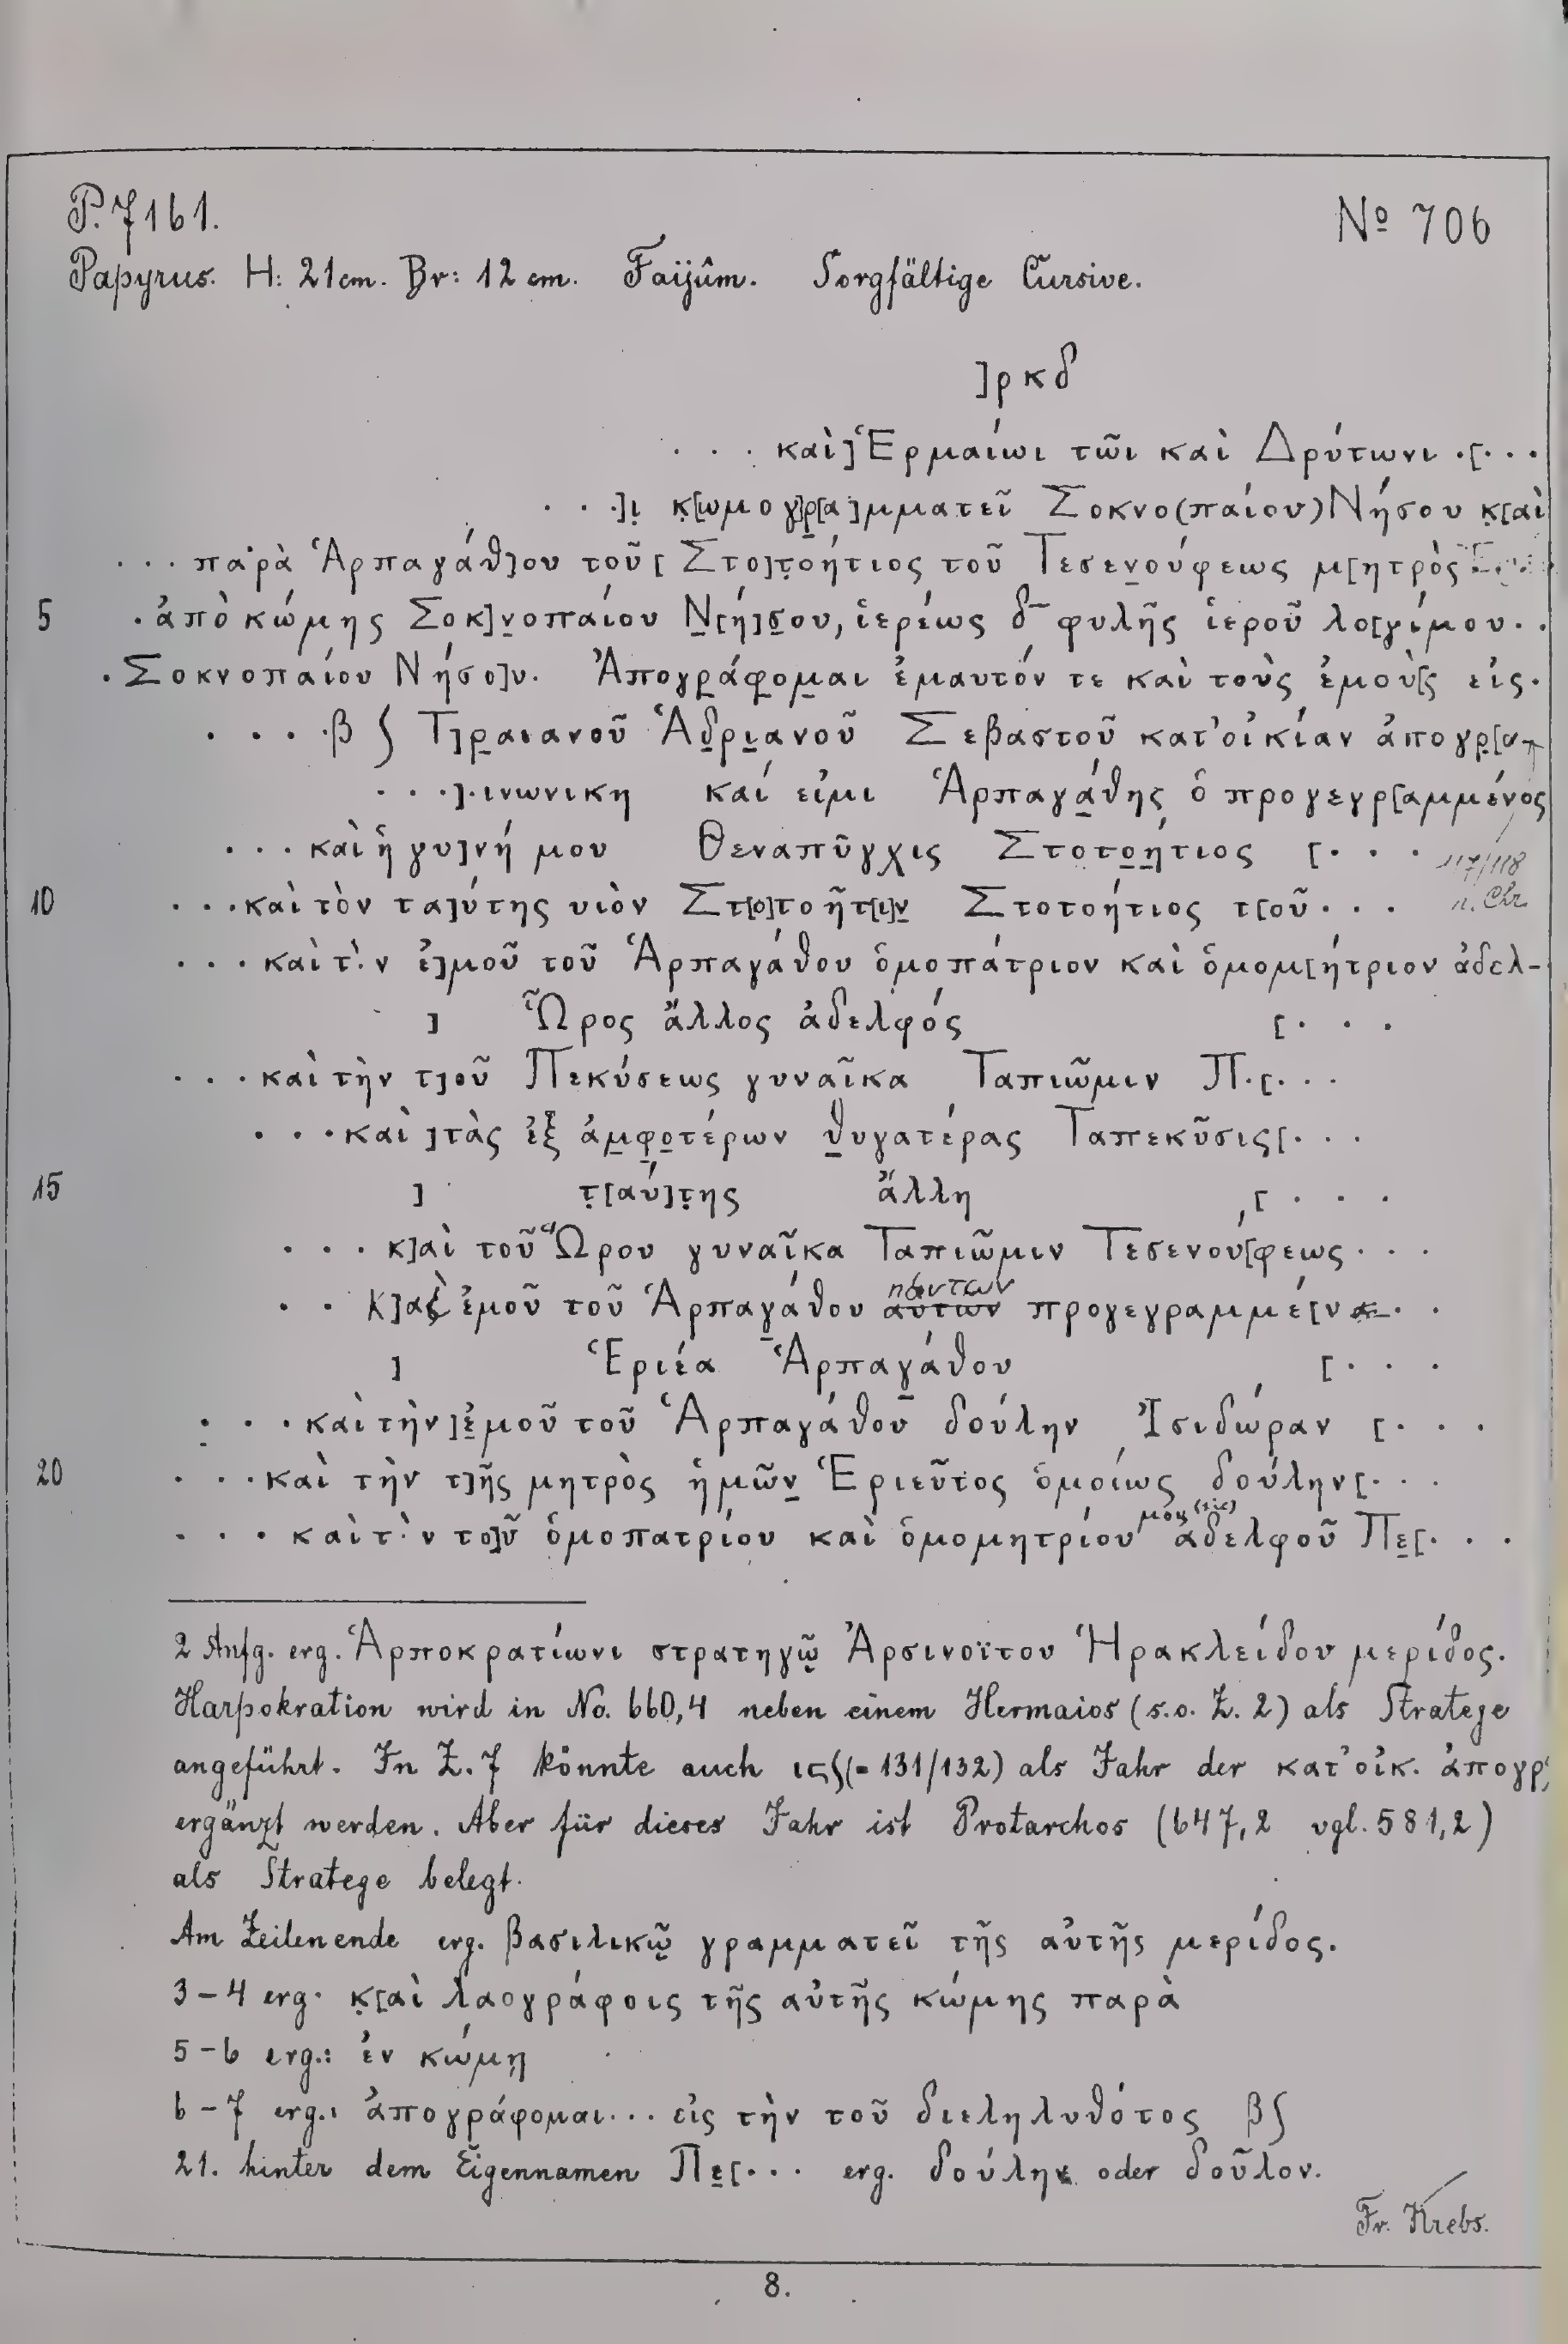 P. 7161.
No 706
Papyrus. H: 21cm. Br: 12 cm. Faijûm. Sorgfältige Cursive.
]ρκδ
. . . καὶ] Ἑρμαίωι τῶι καὶ Δρύτωνι .[. . .
. . .]ι κ[ωμογ]ρ[α]μματεῖ Σοκνο(παίου) Νήσου κ[αὶ
. . . παρὰ Ἁρπαγάθ]ου τοῦ [Στο]τοήτιος τοῦ Τεσενούφεως μ[ητρὸς
5 . ἀπὸ κώμης Σοκ]νοπαίου Ν[ή]σου, ἱερέως δ‾ φυλῆς ἱεροῦ λο[γίμου . .
. Σοκνοπαίου Νήσο]υ. Ἀπογράφομαι ἐμαυτόν τε καὶ τοὺς ἐμοὺ[ς εἰς .
. . . . β ∫ Τ]ραιανοῦ Ἁδριανοῦ Σεβαστοῦ κατ' οἰκίαν ἀπογρ[α-
. . .] . ινωνικη καί εἰμι Ἁρπαγάθης ὁ προγεγρ[αμμένος
. . . καὶ ἡ γυ]νή μου Θεναπῦγχις Στοτοήτιος [. . .
117/118
n. Chr.
10 . . . καὶ τὸν τα]ύτης υἱὸν Στ[ο]τοῆτ[ι]ν Στοτοήτιος τ[οῦ . . .
. . . καὶ τ·ν ἐ]μοῦ τοῦ Ἁρπαγάθου ὁμοπάτριον καὶ ὁμομ[ήτριον ἀδελ-
] Ὧρος ἄλλος ἀδελφός [. . .
. . . καὶ τὴν τ]οῦ Πεκύσεως γυναῖκα Ταπιῶμιν Π.[. . .
. . . καὶ ]τὰς ἐξ ἀμφοτέρων θυγατέρας Ταπεκῦσις[. . .
15 ] τ[αύ]της ἄλλη [. . .
. . . κ]αὶ τοῦ Ὥρου γυναῖκα Ταπιῶμιν Τεσενού[φεως . . .
πάντων
. . κ]αὶ ἐμοῦ τοῦ Ἁρπαγάθου αὐτῶν προγεγραμμέ[ν . .
] Ἑριέα Ἁρπαγάθου [. . .
. . . καὶ τὴν] ἐμοῦ τοῦ Ἁρπαγάθου δούλην Ἰσιδώραν [. . .
20 . . . καὶ τὴν τ]ῆς μητρὸς ἡμῶν Ἑριεῦτος ὁμοίως δούλην[. . .
μου (sic)
. . . καὶ τ·ν το]ῦ ὁμοπατρίου καὶ ὁμομητρίου ἀδελφοῦ Πε[. . .
2 Anfg. erg. Ἁρποκρατίωνι στρατηγῷ Ἀρσινοΐτου Ἡρακλείδου μερίδος.
Harpokration wird in No. 660,4 neben einem Hermaios (s.o. Z. 2) als Stratege
angeführt. In Z. 7 könnte auch ιϛ∫ (= 131/132) als Jahr der κατ' οἰκ. ἀπογρ.
ergänzt werden. Aber für dieses Jahr ist Protarchos (647,2 vgl. 581,2)
als Stratege belegt.
Am Zeilenende erg. βασιλικῷ γραμματεῖ τῆς αὐτῆς μερίδος.
3–4 erg. κ[αὶ λαογράφοις τῆς αὐτῆς κώμης παρὰ
5–6 erg.: ἐν κώμῃ
6–7 erg.: ἀπογράφομαι... εἰς τὴν τοῦ διεληλυθότος β∫
21. hinter dem Eigennamen Πε[. . . erg. δούλην oder δοῦλον.
Fr. Krebs.
8.